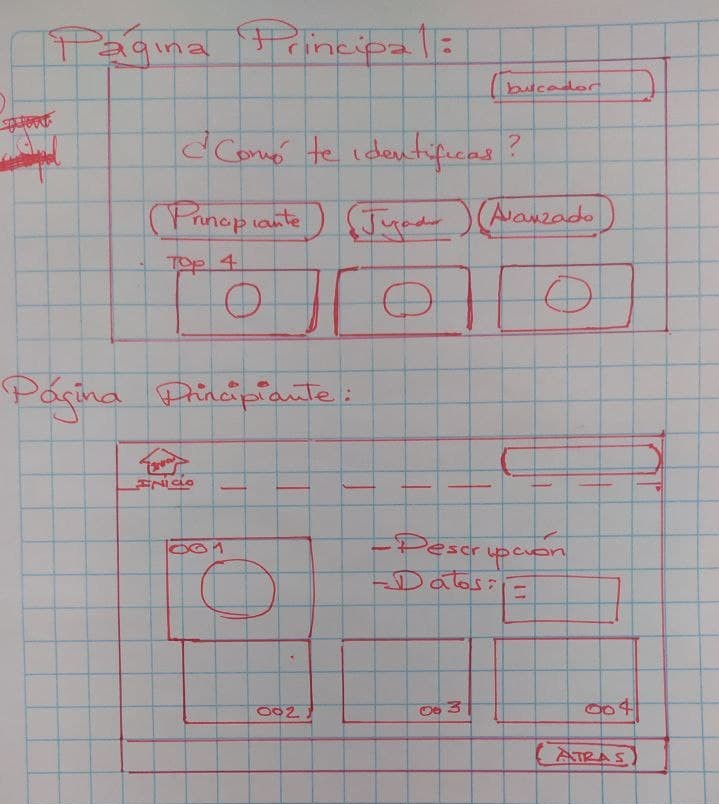 Página Principal:
buscador
¿Comó te identificas?
Principiante Jugador Avanzado
Top 4
Página Principiante:
INICIO
001
- Descripción
- Datos:
002 003 004
ATRAS